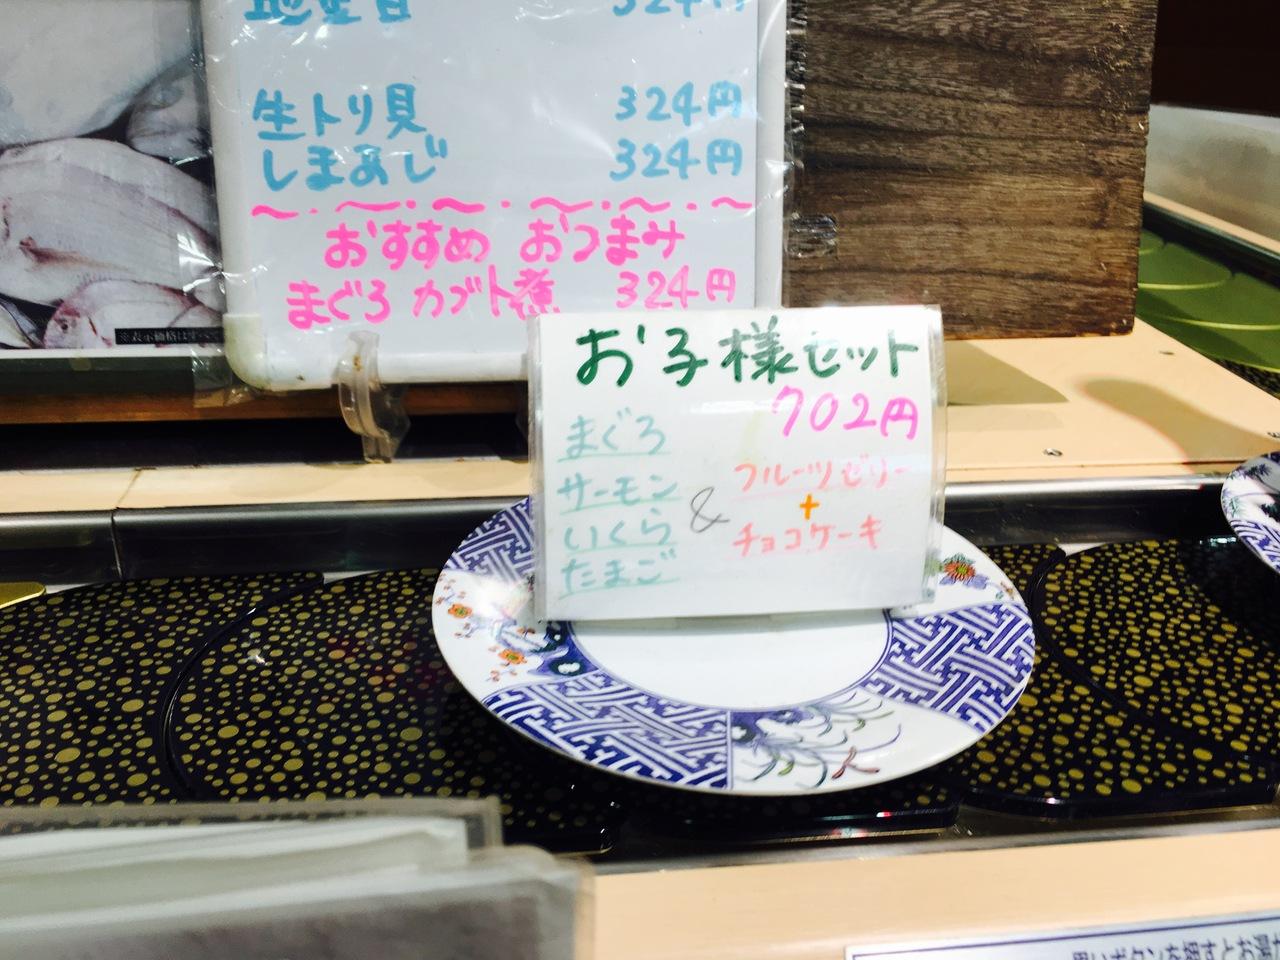 324円
生トリ貝 324円
しまあじ 324円
〜・〜・〜・〜・〜・〜
おすすめ おつまみ
まぐろ カブト煮 324円
※表示価格はすべて
お子様セット
702円
まぐろ
サーモン
いくら
たまご
&
フルーツゼリー
+
チョコケーキ